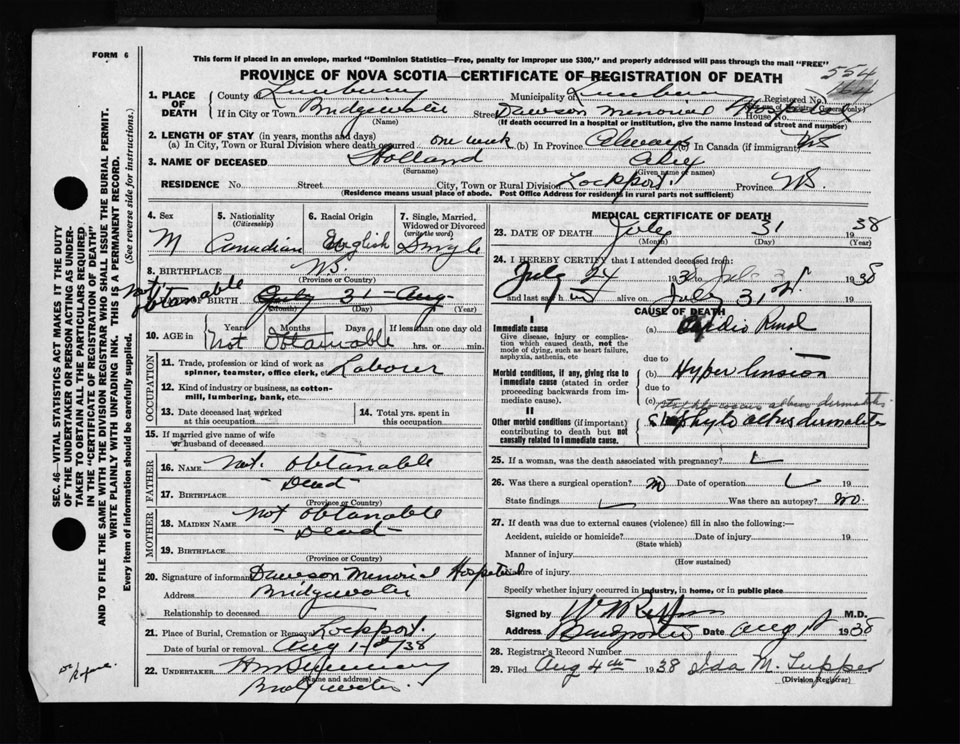 FORM 6
This form if placed in an envelope, marked "Dominion Statistics—Free, penalty for improper use $300," and properly addressed will pass through the mail "FREE"
PROVINCE OF NOVA SCOTIA—CERTIFICATE OF REGISTRATION OF DEATH
554
1. PLACE OF DEATH
County of Lunenburg Municipality of Lunenburg Registered No.
If in City or Town Bridgewater Street Dawson Memorial Hospital House No.
(Name) (If death occurred in a hospital or institution, give the name instead of street and number)
2. LENGTH OF STAY (in years, months and days)
(a) In City, Town or Rural Division where death occurred one week (b) In Province Always (c) In Canada (if immigrant)
3. NAME OF DECEASED Holland Alex
(Surname) (Given name or names)
RESIDENCE No. Street City, Town or Rural Division Lockport Province NS.
(Residence means usual place of abode. Post Office Address for residents in rural parts not sufficient)
4. Sex M
5. Nationality (Citizenship) Canadian
6. Racial Origin English
7. Single, Married, Widowed or Divorced (write the word) Single
8. BIRTHPLACE NS.
(Province or Country)
not obtanable
OF BIRTH July 31 - Aug
(Month) (Day) (Year)
10. AGE in Years Months Days If less than one day old
Not Obtainable hrs. or min.
OCCUPATION
11. Trade, profession or kind of work as spinner, teamster, office clerk, etc. Laborer
12. Kind of industry or business, as cotton-mill, lumbering, bank, etc.
13. Date deceased last worked at this occupation
14. Total yrs. spent in this occupation
15. If married give name of wife or husband of deceased
FATHER
16. NAME not obtanable
- Dead -
17. BIRTHPLACE
(Province or Country)
MOTHER
18. MAIDEN NAME not obtanable
- Dead -
19. BIRTHPLACE
(Province or Country)
20. Signature of informant Dawson Memorial Hospital
Address Bridgewater
Relationship to deceased
21. Place of Burial, Cremation or Removal Lockport.
Date of burial or removal Aug 1st/38
22. UNDERTAKER
(Name and address)
Bridgewater
MEDICAL CERTIFICATE OF DEATH
23. DATE OF DEATH July 31 1938
(Month) (Day) (Year)
24. I HEREBY CERTIFY that I attended deceased from:
July 24 1938 to July 31 1938
and last saw him alive on July 31st. 19
CAUSE OF DEATH
I
Immediate cause
Give disease, injury or complication which caused death, not the mode of dying, such as heart failure, asphyxia, asthenia, etc
(a) Cardio Renal
due to
Morbid conditions, if any, giving rise to immediate cause (stated in order proceeding backwards from immediate cause).
(b) Hyper tension
due to
(c) staphlococcus albus dermatitis
II
Other morbid conditions (if important) contributing to death but not causally related to immediate cause.
Staphylo albus dermatitis
25. If a woman, was the death associated with pregnancy?
26. Was there a surgical operation? no Date of operation 19
State findings Was there an autopsy? no
27. If death was due to external causes (violence) fill in also the following:—
Accident, suicide or homicide? Date of injury 19
(State which)
Manner of injury
(How sustained)
Nature of injury
Specify whether injury occurred in industry, in home, or in public place
Signed by M.D.
Address Bridgewater Date Aug 1st 1938
28. Registrar's Record Number
29. Filed Aug 4th 1938 Ida M. Tupper
(Division Registrar)
SEC. 46—VITAL STATISTICS ACT MAKES IT THE DUTY OF THE UNDERTAKER OR PERSON ACTING AS UNDERTAKER TO OBTAIN ALL THE PARTICULARS REQUIRED IN THE "CERTIFICATE OF REGISTRATION OF DEATH" AND TO FILE THE SAME WITH THE DIVISION REGISTRAR WHO SHALL ISSUE THE BURIAL PERMIT.
WRITE PLAINLY WITH UNFADING INK. THIS IS A PERMANENT RECORD.
Every item of information should be carefully supplied. (See reverse side for instructions.)